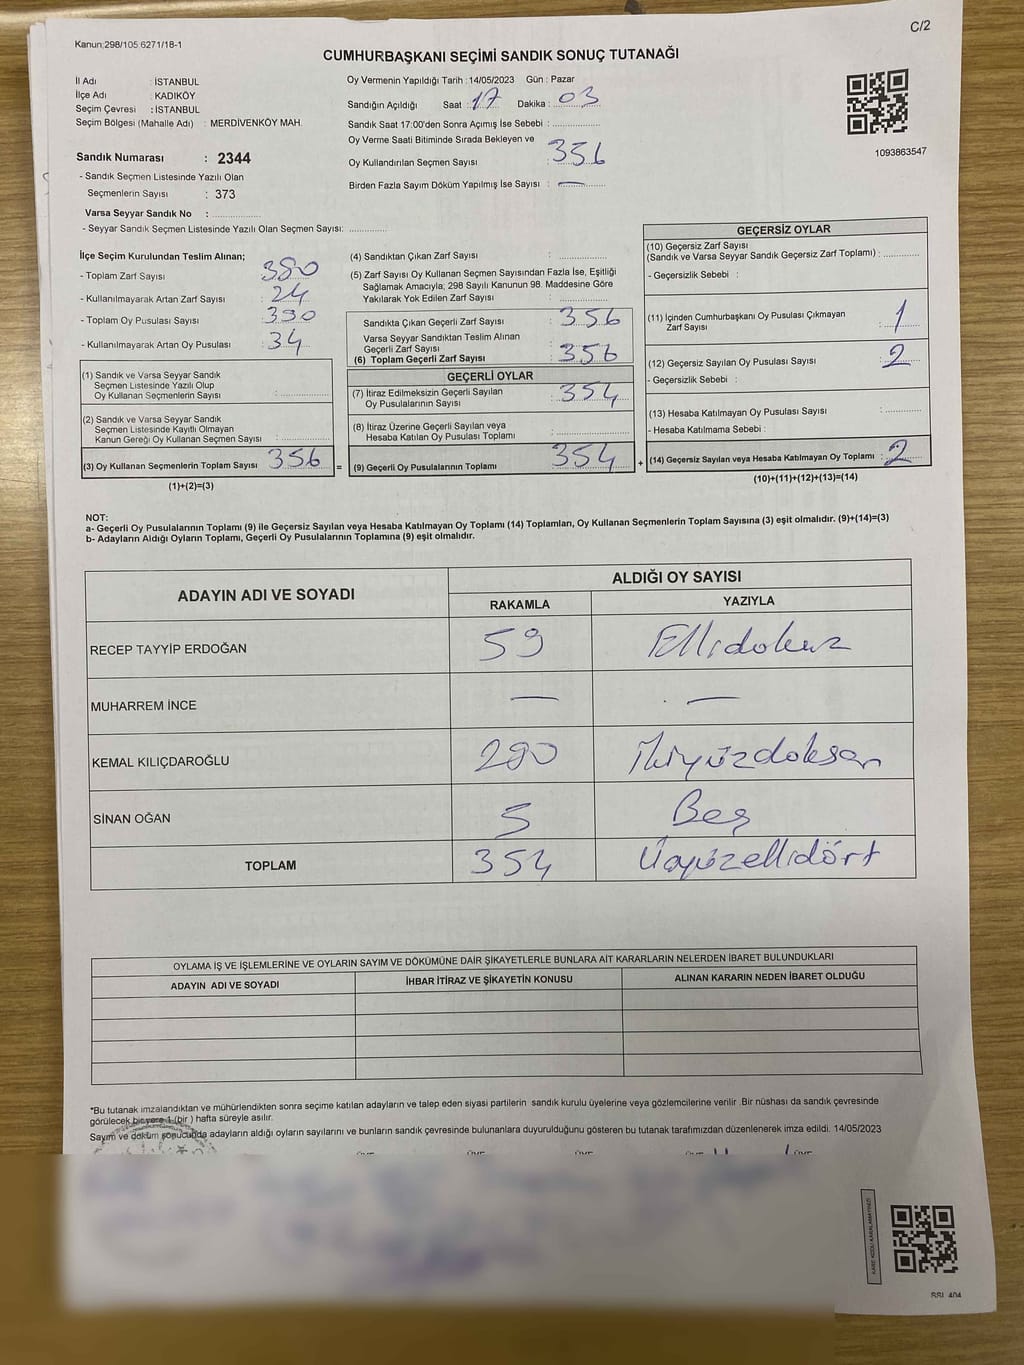 C/2
Kanun:298/105 6271/18-1
CUMHURBAŞKANI SEÇİMİ SANDIK SONUÇ TUTANAĞI
İl Adı : İSTANBUL
İlçe Adı : KADIKÖY
Seçim Çevresi : İSTANBUL
Seçim Bölgesi (Mahalle Adı) : MERDİVENKÖY MAH.
Sandık Numarası : 2344
- Sandık Seçmen Listesinde Yazılı Olan
Seçmenlerin Sayısı : 373
Varsa Seyyar Sandık No :
- Seyyar Sandık Seçmen Listesinde Yazılı Olan Seçmen Sayısı:
Oy Vermenin Yapıldığı Tarih : 14/05/2023 Gün : Pazar
Sandığın Açıldığı Saat : 17 Dakika : 03
Sandık Saat 17:00'den Sonra Açımış İse Sebebi :
Oy Verme Saati Bitiminde Sırada Bekleyen ve
Oy Kullandırılan Seçmen Sayısı : 356
Birden Fazla Sayım Döküm Yapılmış İse Sayısı : —
1093863547
İlçe Seçim Kurulundan Teslim Alınan;
- Toplam Zarf Sayısı : 380
- Kullanılmayarak Artan Zarf Sayısı : 24
- Toplam Oy Pusulası Sayısı : 390
- Kullanılmayarak Artan Oy Pusulası : 34
(1) Sandık ve Varsa Seyyar Sandık
Seçmen Listesinde Yazılı Olup
Oy Kullanan Seçmenlerin Sayısı :
(2) Sandık ve Varsa Seyyar Sandık
Seçmen Listesinde Kayıtlı Olmayan
Kanun Gereği Oy Kullanan Seçmen Sayısı :
(3) Oy Kullanan Seçmenlerin Toplam Sayısı : 356 =
(1)+(2)=(3)
(4) Sandıktan Çıkan Zarf Sayısı :
(5) Zarf Sayısı Oy Kullanan Seçmen Sayısından Fazla İse, Eşitliği
Sağlamak Amacıyla; 298 Sayılı Kanunun 98. Maddesine Göre
Yakılarak Yok Edilen Zarf Sayısı :
Sandıkta Çıkan Geçerli Zarf Sayısı : 356
Varsa Seyyar Sandıktan Teslim Alınan
Geçerli Zarf Sayısı
(6) Toplam Geçerli Zarf Sayısı : 356
GEÇERLİ OYLAR
(7) İtiraz Edilmeksizin Geçerli Sayılan
Oy Pusulalarının Sayısı : 354
(8) İtiraz Üzerine Geçerli Sayılan veya
Hesaba Katılan Oy Pusulası Toplamı :
(9) Geçerli Oy Pusulalarının Toplamı : 354 +
GEÇERSİZ OYLAR
(10) Geçersiz Zarf Sayısı
(Sandık ve Varsa Seyyar Sandık Geçersiz Zarf Toplamı) :
- Geçersizlik Sebebi :
(11) İçinden Cumhurbaşkanı Oy Pusulası Çıkmayan
Zarf Sayısı : 1
(12) Geçersiz Sayılan Oy Pusulası Sayısı : 2
- Geçersizlik Sebebi :
(13) Hesaba Katılmayan Oy Pusulası Sayısı :
- Hesaba Katılmama Sebebi :
(14) Geçersiz Sayılan veya Hesaba Katılmayan Oy Toplamı : 2
(10)+(11)+(12)+(13)=(14)
NOT:
a- Geçerli Oy Pusulalarının Toplamı (9) ile Geçersiz Sayılan veya Hesaba Katılmayan Oy Toplamı (14) Toplamları, Oy Kullanan Seçmenlerin Toplam Sayısına (3) eşit olmalıdır. (9)+(14)=(3)
b- Adayların Aldığı Oyların Toplamı, Geçerli Oy Pusulalarının Toplamına (9) eşit olmalıdır.
ADAYIN ADI VE SOYADI ALDIĞI OY SAYISI
RAKAMLA YAZIYLA
RECEP TAYYİP ERDOĞAN 59 Ellidokuz
MUHARREM İNCE — —
KEMAL KILIÇDAROĞLU 290 İkiyüzdoksan
SİNAN OĞAN 5 Beş
TOPLAM 354 Üçyüzellidört
OYLAMA İŞ VE İŞLEMLERİNE VE OYLARIN SAYIM VE DÖKÜMÜNE DAİR ŞİKAYETLERLE BUNLARA AİT KARARLARIN NELERDEN İBARET BULUNDUKLARI
ADAYIN ADI VE SOYADI İHBAR İTİRAZ VE ŞİKAYETİN KONUSU ALINAN KARARIN NEDEN İBARET OLDUĞU
*Bu tutanak imzalandıktan ve mühürlendikten sonra seçime katılan adayların ve talep eden siyasi partilerin sandık kurulu üyelerine veya gözlemcilerine verilir .Bir nüshası da sandık çevresinde
görülecek bir yere 1 (bir ) hafta süreyle asılır.
Sayım ve döküm sonucunda adayların aldığı oyların sayılarını ve bunların sandık çevresinde bulunanlara duyurulduğunu gösteren bu tutanak tarafımızdan düzenlenerek imza edildi. 14/05/2023